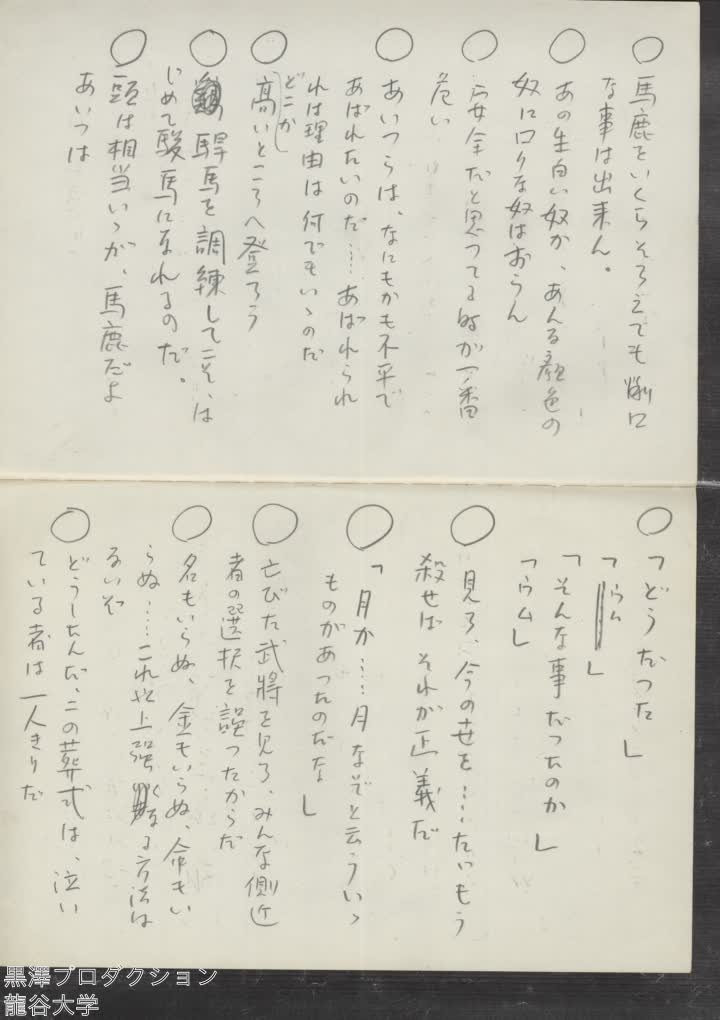 ○馬鹿をいくらそろえても悧口
な事は出来ん。
○あの生白い奴か、あんな顔色の
奴にロクな奴はおらん
○安全だと思つてる時が一番
危い
○あいつらは、なにもかも不平で
あばれたいのだ……あばれられ
れば理由は何でもいゝのだ
○どこか高いところへ登ろう
○駻馬を調練してこそ、は
じめて駿馬になれるのだ。
○頭は相当いゝが、馬鹿だよ
あいつは
○「どうだつた」
「ウム」
「そんな事だつたのか」
「ウム」
○見ろ、今の世を……たいもう
殺せばそれが正義だ
○「月か……月なぞと云ういゝ
ものがあつたのだな」
○亡びた武将を見ろ、みんな側近
者の選択を誤つたからだ
○名もいらぬ、金もいらぬ、命もい
らぬ……これ以上強くなる方法は
ないぞ
○どうしたんだ、この葬式は、泣い
ている者は一人きりだ
黒澤プロダクション
龍谷大学